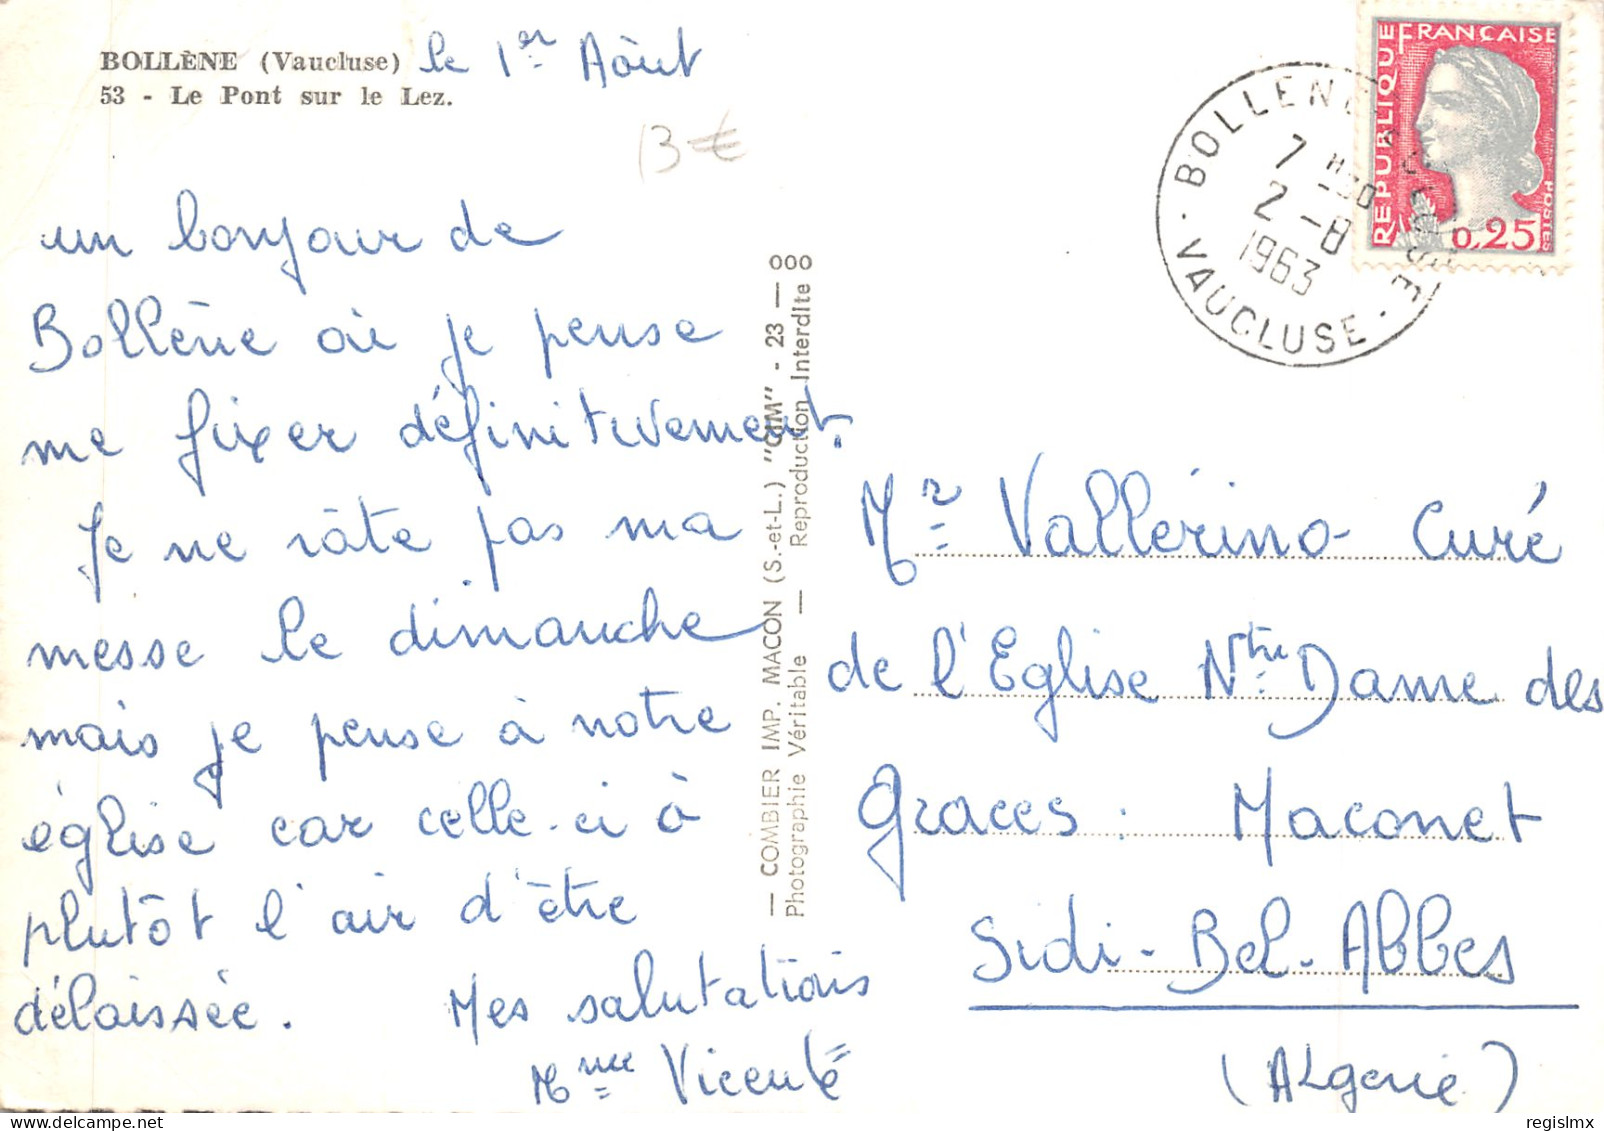 BOLLÈNE (Vaucluse) le 1er Aôut
53 - Le Pont sur le Lez.
13 €
un bonjour de
Bollène où je pense
me fixer définitivement.
Je ne râte pas ma
messe le dimanche
mais je pense à notre
église car celle-ci à
plutôt l'air d'être
délaissée. Mes salutations
Mme Vicente
— COMBIER IMP. MACON (S.-et-L.) "CIM" - 23 — 000
Photographie Véritable — Reproduction Interdite
REPUBLIQUE FRANÇAISE
POSTES
0,25
BOLLENE
7 H30
2 -8
1963
VAUCLUSE
Mr Vallérino Curé
de l'Eglise Ntre Dame des
Graces : Maconet
Sidi-Bel-Abbes
(Algerie)
regislmx